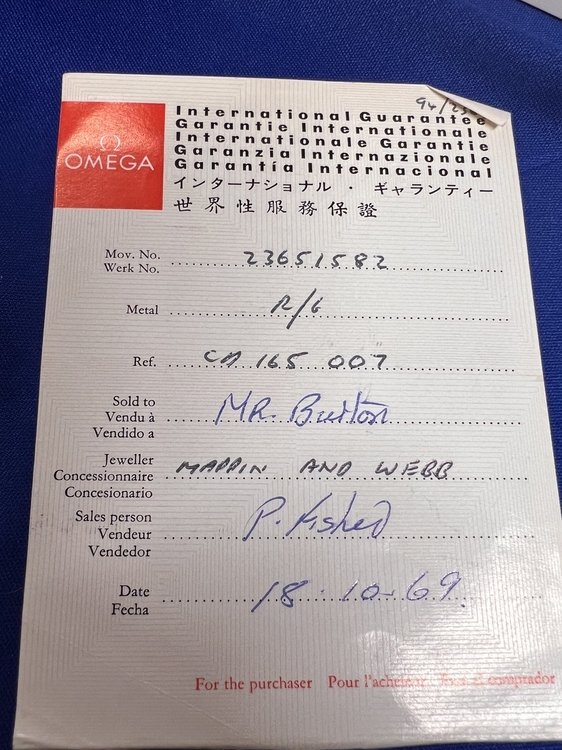 94/23
International Guarantee
Garantie Internationale
Internationale Garantie
Garanzia Internazionale
Garantía Internacional
インターナショナル ・ ギャランティー
世界性服務保證
Ω
OMEGA
Mov. No. 23651582
Werk No.
Metal R/G
Ref. CA 165 007
Sold to MR. Burton
Vendu à
Vendido a
Jeweller MAPPIN AND WEBB
Concessionnaire
Concesionario
Sales person P. Fisher
Vendeur
Vendedor
Date 18-10-69.
Fecha
For the purchaser Pour l'acheteur Para el comprador